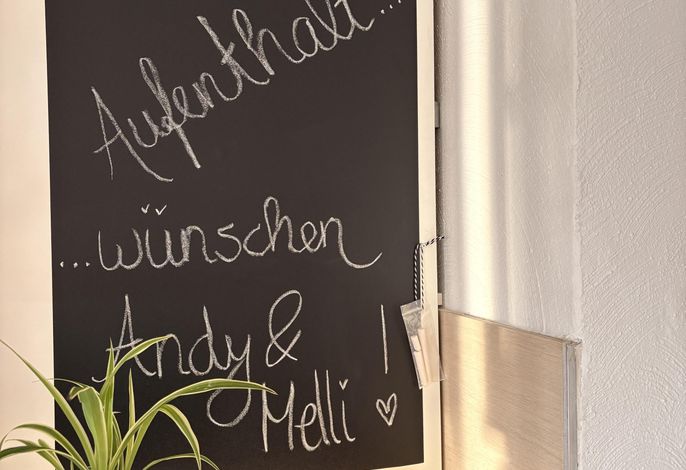 Aufenthalt...
...wünschen
Andy & !
Melli ♡